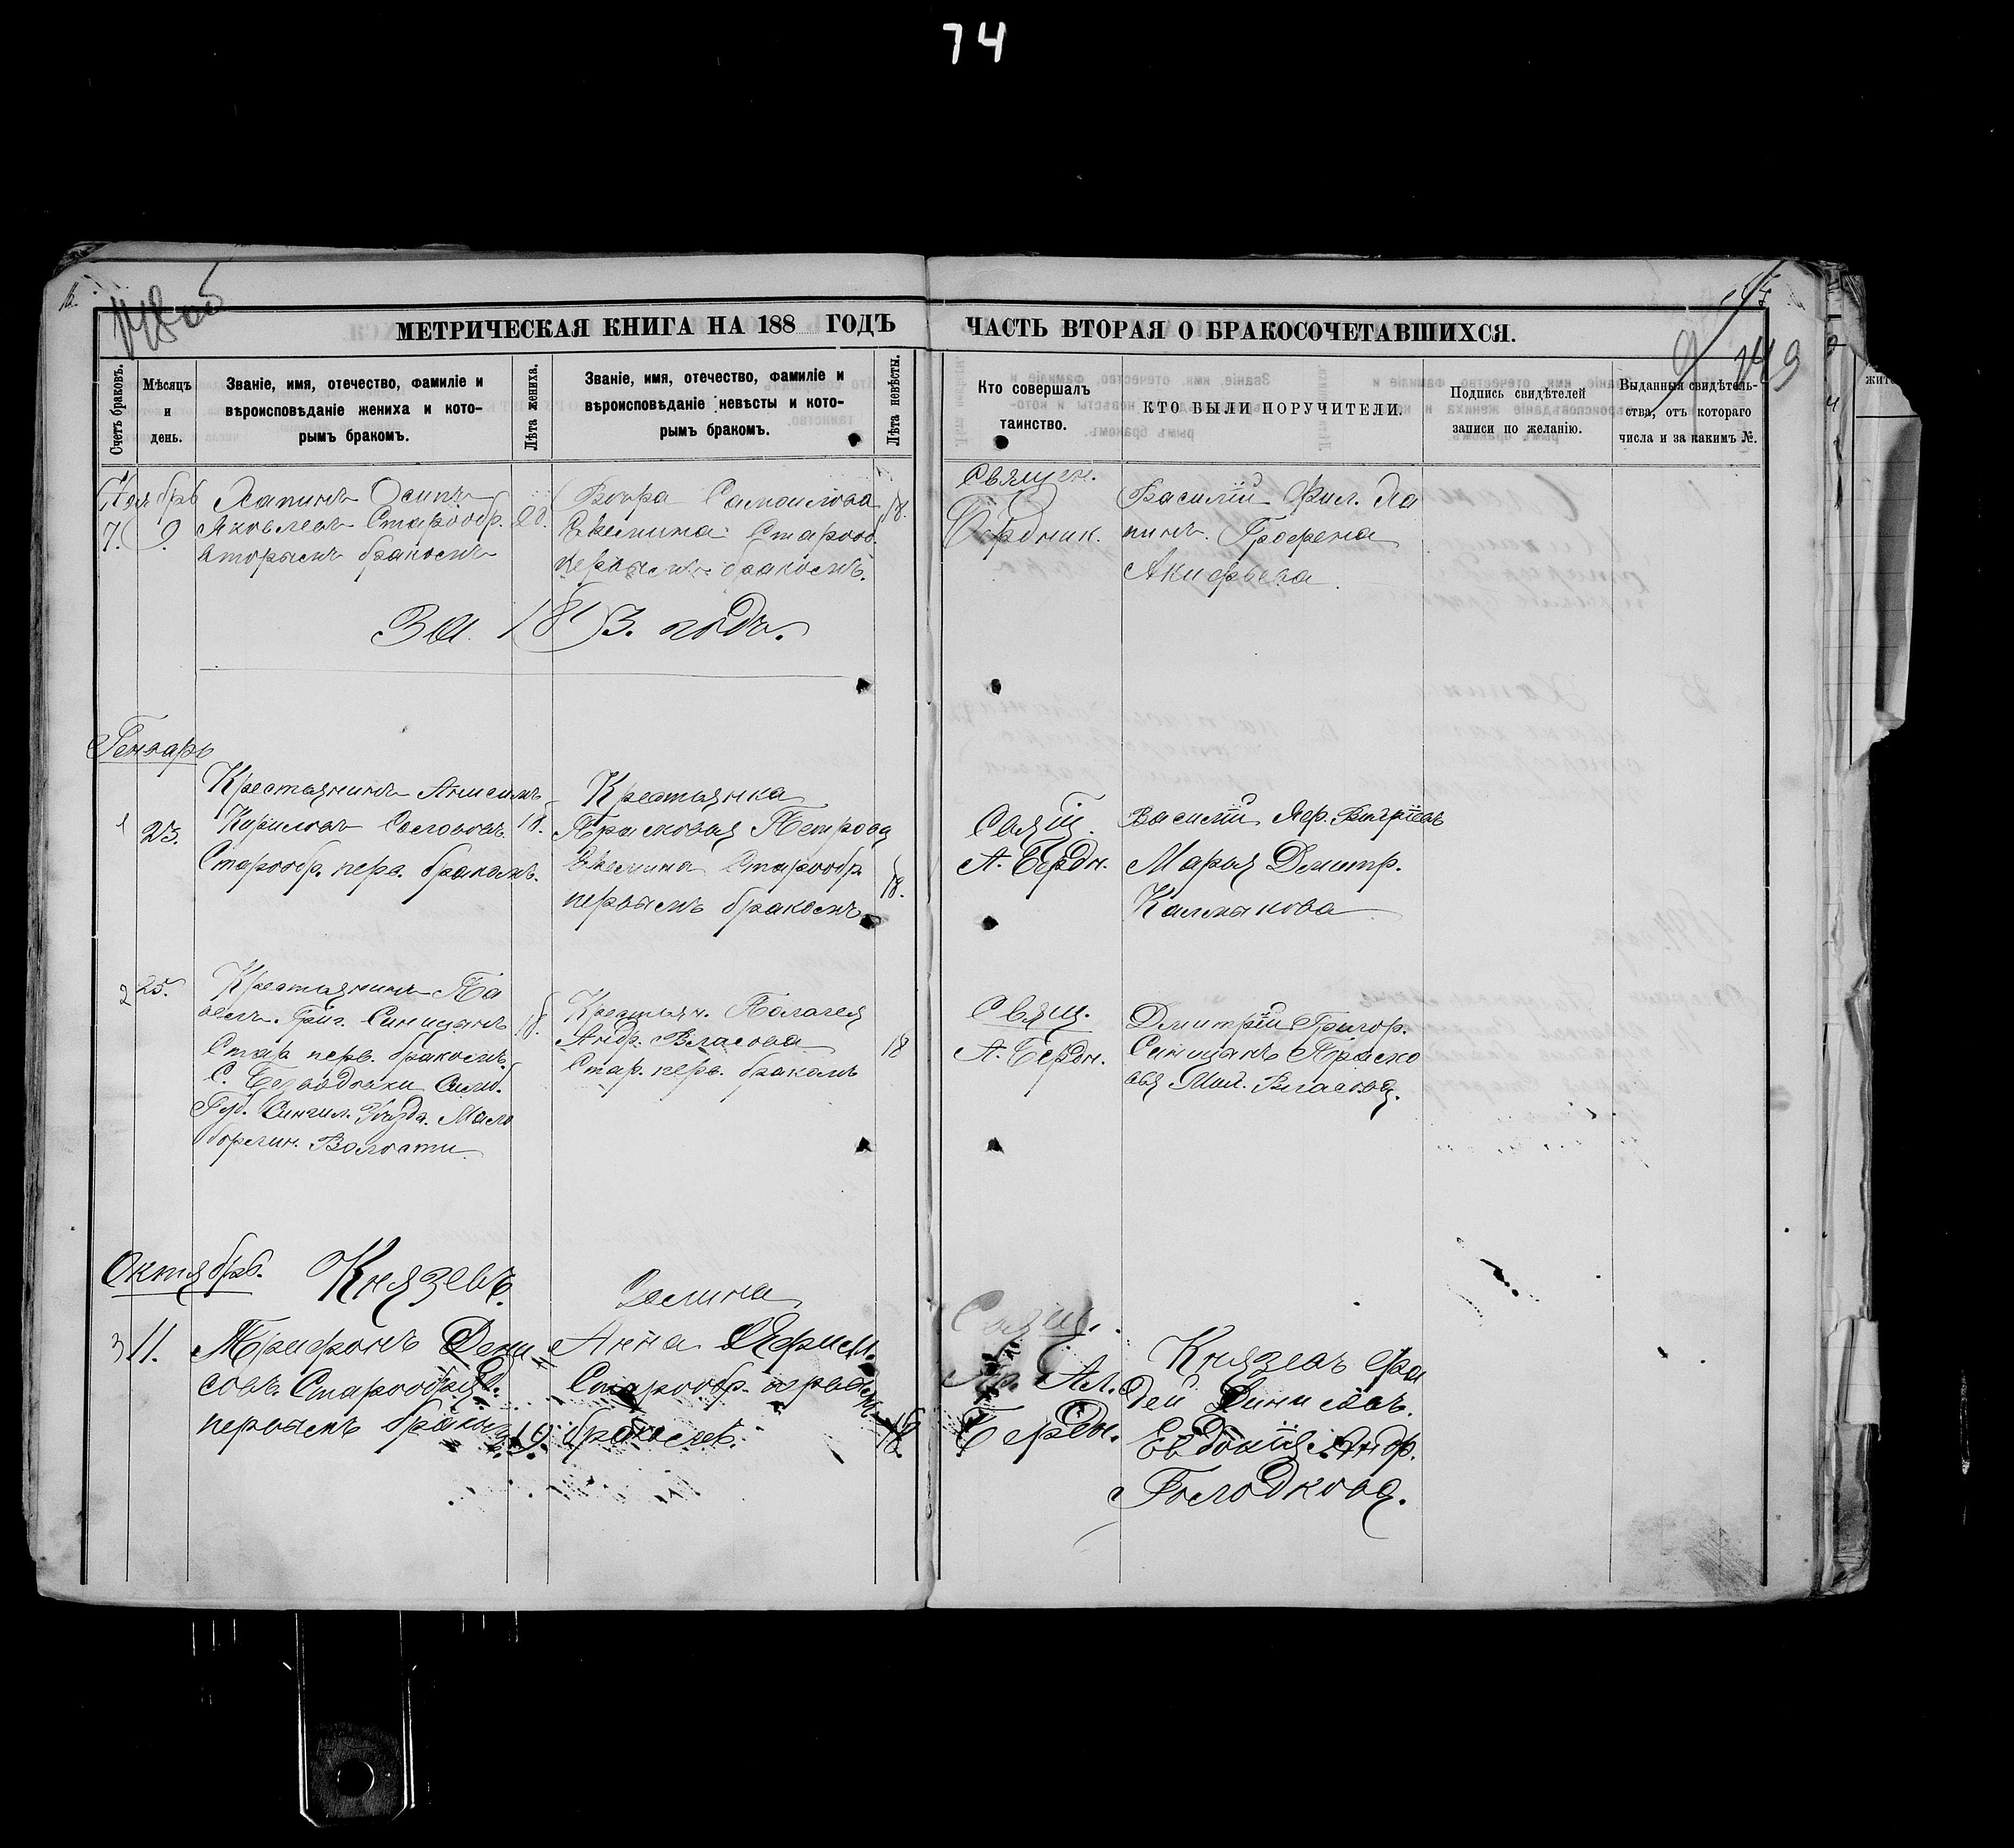 74
148 об
149
МЕТРИЧЕСКАЯ КНИГА НА 188 ГОДЪ
ЧАСТЬ ВТОРАЯ О БРАКОСОЧЕТАВШИХСЯ.
Счетъ браковъ.
Мѣсяцъ и день.
Званіе, имя, отечество, фамиліе и
вѣроисповѣданіе жениха и кото-
рымъ бракомъ.
Лѣта жениха.
Званіе, имя, отечество, фамиліе и
вѣроисповѣданіе невѣсты и кото-
рымъ бракомъ.
Лѣта невѣсты.
Кто совершалъ
таинство.
КТО БЫЛИ ПОРУЧИТЕЛИ.
Подпись свидѣтелей
записи по желанію.
Выданныя свидѣтель-
ства, отъ котораго
числа и за какимъ №.
Ноябрь
7. 9.
Лапинъ Осипъ
Яковлевъ Старообр. 20.
вторымъ бракомъ
Вѣра Самоилова 18.
Старооб.
первымъ бракомъ.
Священ.
Бердник.
Василій Фил. Ла
пинъ. Графена
Акифьева
За 1893. годъ.
Генварь
1 23.
Крестьянинъ Анисимъ
Кириловъ 18.
Старообр. перв. бракомъ.
Крестьянка
Прасковья Петрова
Старообр.
первымъ бракомъ
18.
Свящ.
А. Бердн.
Василій
Марья Дмитр.
Калмыкова
2 25.
Крестьянинъ Па
велъ. Григ. Синицынъ 18.
Стар. перв. бракомъ.
С. Симб.
Губ. Сингил. Уѣзда. Мало
Волости
Крестьян. Палагея
Андр. Власова 18
Стар. перв. бракомъ
Свящ.
А. Бердн.
Дмитрій Григор.
Синицынъ Праско
вья Мих. Власова.
Октябрь.
3 11.
Князевъ.
Трифонъ Дени
совъ. Старообряд.
первымъ бракомъ 19.
Демина
Анна Ефим.
Старообр. первымъ
бракомъ. 18.
Свящ.
Ал.
Бердн.
Князевъ Фа
дей Динисовъ.
Евдокія Андр.
Голодкова.